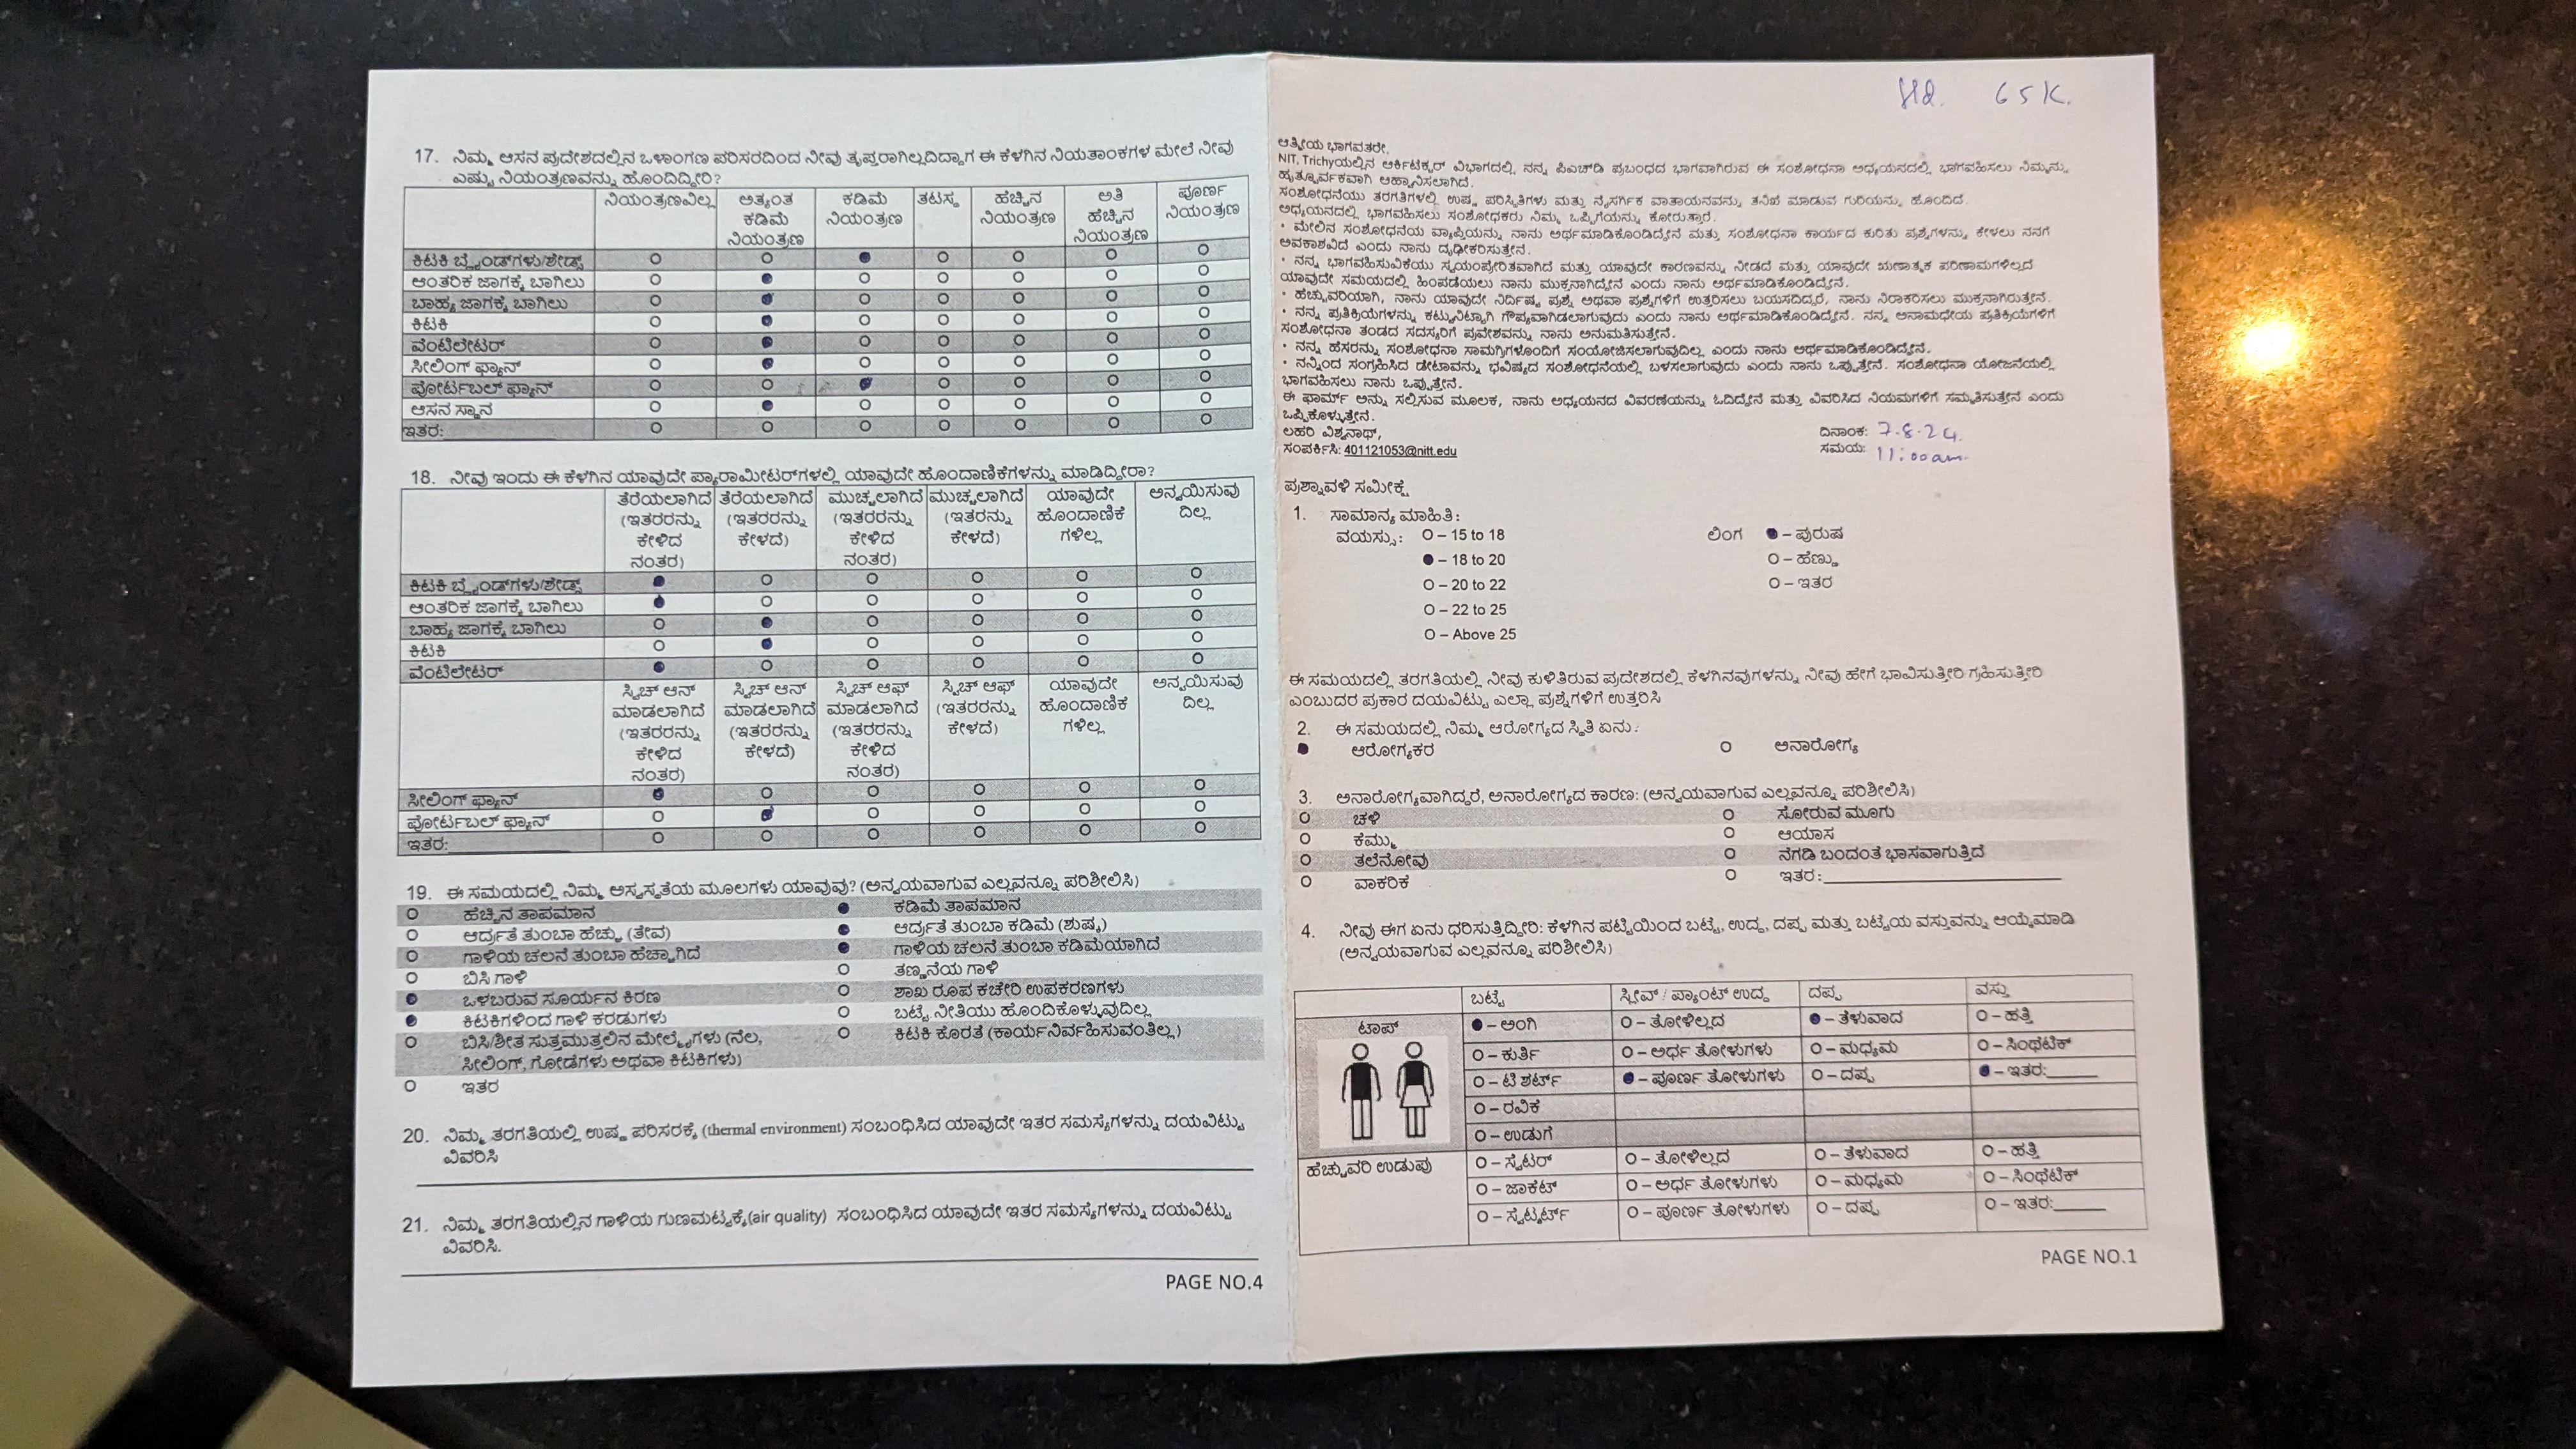 17. ನಿಮ್ಮ ಆಸನ ಪ್ರದೇಶದಲ್ಲಿನ ಒಳಾಂಗಣ ಪರಿಸರದಿಂದ ನೀವು ತೃಪ್ತರಾಗಿಲ್ಲದಿದ್ದಾಗ ಈ ಕೆಳಗಿನ ನಿಯತಾಂಕಗಳ ಮೇಲೆ ನೀವು
ಎಷ್ಟು ನಿಯಂತ್ರಣವನ್ನು ಹೊಂದಿದ್ದೀರಿ?
ನಿಯಂತ್ರಣವಿಲ್ಲ ಅತ್ಯಂತ ಕಡಿಮೆ ನಿಯಂತ್ರಣ ಕಡಿಮೆ ನಿಯಂತ್ರಣ ತಟಸ್ಥ ಹೆಚ್ಚಿನ ನಿಯಂತ್ರಣ ಅತಿ ಹೆಚ್ಚಿನ ನಿಯಂತ್ರಣ ಪೂರ್ಣ ನಿಯಂತ್ರಣ
ಕಿಟಕಿ ಬ್ಲೈಂಡ್‌ಗಳು/ಶೇಡ್ಸ್
ಆಂತರಿಕ ಜಾಗಕ್ಕೆ ಬಾಗಿಲು
ಬಾಹ್ಯ ಜಾಗಕ್ಕೆ ಬಾಗಿಲು
ಕಿಟಕಿ
ವೆಂಟಿಲೇಟರ್
ಸೀಲಿಂಗ್ ಫ್ಯಾನ್
ಪೋರ್ಟಬಲ್ ಫ್ಯಾನ್
ಆಸನ ಸ್ಥಾನ
ಇತರ:
18. ನೀವು ಇಂದು ಈ ಕೆಳಗಿನ ಯಾವುದೇ ಪ್ಯಾರಾಮೀಟರ್‌ಗಳಲ್ಲಿ ಯಾವುದೇ ಹೊಂದಾಣಿಕೆಗಳನ್ನು ಮಾಡಿದ್ದೀರಾ?
ತೆರೆಯಲಾಗಿದೆ (ಇತರರನ್ನು ಕೇಳಿದ ನಂತರ) ತೆರೆಯಲಾಗಿದೆ (ಇತರರನ್ನು ಕೇಳದೆ) ಮುಚ್ಚಲಾಗಿದೆ (ಇತರರನ್ನು ಕೇಳಿದ ನಂತರ) ಮುಚ್ಚಲಾಗಿದೆ (ಇತರನ್ನು ಕೇಳದೆ) ಯಾವುದೇ ಹೊಂದಾಣಿಕೆ ಗಳಿಲ್ಲ ಅನ್ವಯಿಸುವು ದಿಲ್ಲ
ಕಿಟಕಿ ಬ್ಲೈಂಡ್‌ಗಳು/ಶೇಡ್ಸ್
ಆಂತರಿಕ ಜಾಗಕ್ಕೆ ಬಾಗಿಲು
ಬಾಹ್ಯ ಜಾಗಕ್ಕೆ ಬಾಗಿಲು
ಕಿಟಕಿ
ವೆಂಟಿಲೇಟರ್
ಸ್ವಿಚ್ ಆನ್ ಮಾಡಲಾಗಿದೆ (ಇತರರನ್ನು ಕೇಳಿದ ನಂತರ) ಸ್ವಿಚ್ ಆನ್ ಮಾಡಲಾಗಿದೆ (ಇತರರನ್ನು ಕೇಳದೆ) ಸ್ವಿಚ್ ಆಫ್ ಮಾಡಲಾಗಿದೆ (ಇತರರನ್ನು ಕೇಳಿದ ನಂತರ) ಸ್ವಿಚ್ ಆಫ್ (ಇತರರನ್ನು ಕೇಳದೆ) ಯಾವುದೇ ಹೊಂದಾಣಿಕೆ ಗಳಿಲ್ಲ ಅನ್ವಯಿಸುವು ದಿಲ್ಲ
ಸೀಲಿಂಗ್ ಫ್ಯಾನ್
ಪೋರ್ಟಬಲ್ ಫ್ಯಾನ್
ಇತರ:
19. ಈ ಸಮಯದಲ್ಲಿ ನಿಮ್ಮ ಅಸ್ವಸ್ಥತೆಯ ಮೂಲಗಳು ಯಾವುವು? (ಅನ್ವಯವಾಗುವ ಎಲ್ಲವನ್ನೂ ಪರಿಶೀಲಿಸಿ)
ಹೆಚ್ಚಿನ ತಾಪಮಾನ ಕಡಿಮೆ ತಾಪಮಾನ
ಆರ್ದ್ರತೆ ತುಂಬಾ ಹೆಚ್ಚು (ತೇವ) ಆರ್ದ್ರತೆ ತುಂಬಾ ಕಡಿಮೆ (ಶುಷ್ಕ)
ಗಾಳಿಯ ಚಲನೆ ತುಂಬಾ ಹೆಚ್ಚಾಗಿದೆ ಗಾಳಿಯ ಚಲನೆ ತುಂಬಾ ಕಡಿಮೆಯಾಗಿದೆ
ಬಿಸಿ ಗಾಳಿ ತಣ್ಣನೆಯ ಗಾಳಿ
ಒಳಬರುವ ಸೂರ್ಯನ ಕಿರಣ ಶಾಖ ರೂಪ ಕಚೇರಿ ಉಪಕರಣಗಳು
ಕಿಟಕಿಗಳಿಂದ ಗಾಳಿ ಕರಡುಗಳು ಬಟ್ಟೆ ನೀತಿಯು ಹೊಂದಿಕೊಳ್ಳುವುದಿಲ್ಲ
ಬಿಸಿ/ಶೀತ ಸುತ್ತಮುತ್ತಲಿನ ಮೇಲ್ಮೈಗಳು (ನೆಲ, ಕಿಟಕಿ ಕೊರತೆ (ಕಾರ್ಯನಿರ್ವಹಿಸುವಂತಿಲ್ಲ)
ಸೀಲಿಂಗ್, ಗೋಡೆಗಳು ಅಥವಾ ಕಿಟಕಿಗಳು)
ಇತರ
20. ನಿಮ್ಮ ತರಗತಿಯಲ್ಲಿ ಉಷ್ಣ ಪರಿಸರಕ್ಕೆ (thermal environment) ಸಂಬಂಧಿಸಿದ ಯಾವುದೇ ಇತರ ಸಮಸ್ಯೆಗಳನ್ನು ದಯವಿಟ್ಟು
ವಿವರಿಸಿ
21. ನಿಮ್ಮ ತರಗತಿಯಲ್ಲಿನ ಗಾಳಿಯ ಗುಣಮಟ್ಟಕ್ಕೆ(air quality) ಸಂಬಂಧಿಸಿದ ಯಾವುದೇ ಇತರ ಸಮಸ್ಯೆಗಳನ್ನು ದಯವಿಟ್ಟು
ವಿವರಿಸಿ.
PAGE NO.4
65K.
ಆತ್ಮೀಯ ಭಾಗವತರೇ,
NIT, Trichyಯಲ್ಲಿನ ಆರ್ಕಿಟೆಕ್ಚರ್ ವಿಭಾಗದಲ್ಲಿ ನನ್ನ ಪಿಎಚ್‌ಡಿ ಪ್ರಬಂಧದ ಭಾಗವಾಗಿರುವ ಈ ಸಂಶೋಧನಾ ಅಧ್ಯಯನದಲ್ಲಿ ಭಾಗವಹಿಸಲು ನಿಮ್ಮನ್ನು
ಹೃತ್ಪೂರ್ವಕವಾಗಿ ಆಹ್ವಾನಿಸಲಾಗಿದೆ.
ಸಂಶೋಧನೆಯು ತರಗತಿಗಳಲ್ಲಿ ಉಷ್ಣ ಪರಿಸ್ಥಿತಿಗಳು ಮತ್ತು ನೈಸರ್ಗಿಕ ವಾತಾಯನವನ್ನು ತನಿಖೆ ಮಾಡುವ ಗುರಿಯನ್ನು ಹೊಂದಿದೆ.
ಅಧ್ಯಯನದಲ್ಲಿ ಭಾಗವಹಿಸಲು ಸಂಶೋಧಕರು ನಿಮ್ಮ ಒಪ್ಪಿಗೆಯನ್ನು ಕೋರುತ್ತಾರೆ.
• ಮೇಲಿನ ಸಂಶೋಧನೆಯ ವ್ಯಾಪ್ತಿಯನ್ನು ನಾನು ಅರ್ಥಮಾಡಿಕೊಂಡಿದ್ದೇನೆ ಮತ್ತು ಸಂಶೋಧನಾ ಕಾರ್ಯದ ಕುರಿತು ಪ್ರಶ್ನೆಗಳನ್ನು ಕೇಳಲು ನನಗೆ
ಅವಕಾಶವಿದೆ ಎಂದು ನಾನು ದೃಢೀಕರಿಸುತ್ತೇನೆ.
• ನನ್ನ ಭಾಗವಹಿಸುವಿಕೆಯು ಸ್ವಯಂಪ್ರೇರಿತವಾಗಿದೆ ಮತ್ತು ಯಾವುದೇ ಕಾರಣವನ್ನು ನೀಡದೆ ಮತ್ತು ಯಾವುದೇ ಋಣಾತ್ಮಕ ಪರಿಣಾಮಗಳಿಲ್ಲದೆ
ಯಾವುದೇ ಸಮಯದಲ್ಲಿ ಹಿಂಪಡೆಯಲು ನಾನು ಮುಕ್ತನಾಗಿದ್ದೇನೆ ಎಂದು ನಾನು ಅರ್ಥಮಾಡಿಕೊಂಡಿದ್ದೇನೆ.
• ಹೆಚ್ಚುವರಿಯಾಗಿ, ನಾನು ಯಾವುದೇ ನಿರ್ದಿಷ್ಟ ಪ್ರಶ್ನೆ ಅಥವಾ ಪ್ರಶ್ನೆಗಳಿಗೆ ಉತ್ತರಿಸಲು ಬಯಸದಿದ್ದರೆ, ನಾನು ನಿರಾಕರಿಸಲು ಮುಕ್ತನಾಗಿರುತ್ತೇನೆ.
• ನನ್ನ ಪ್ರತಿಕ್ರಿಯೆಗಳನ್ನು ಕಟ್ಟುನಿಟ್ಟಾಗಿ ಗೌಪ್ಯವಾಗಿಡಲಾಗುವುದು ಎಂದು ನಾನು ಅರ್ಥಮಾಡಿಕೊಂಡಿದ್ದೇನೆ. ನನ್ನ ಅನಾಮಧೇಯ ಪ್ರತಿಕ್ರಿಯೆಗಳಿಗೆ
ಸಂಶೋಧನಾ ತಂಡದ ಸದಸ್ಯರಿಗೆ ಪ್ರವೇಶವನ್ನು ನಾನು ಅನುಮತಿಸುತ್ತೇನೆ.
• ನನ್ನ ಹೆಸರನ್ನು ಸಂಶೋಧನಾ ಸಾಮಗ್ರಿಗಳೊಂದಿಗೆ ಸಂಯೋಜಿಸಲಾಗುವುದಿಲ್ಲ ಎಂದು ನಾನು ಅರ್ಥಮಾಡಿಕೊಂಡಿದ್ದೇನೆ.
• ನನ್ನಿಂದ ಸಂಗ್ರಹಿಸಿದ ಡೇಟಾವನ್ನು ಭವಿಷ್ಯದ ಸಂಶೋಧನೆಯಲ್ಲಿ ಬಳಸಲಾಗುವುದು ಎಂದು ನಾನು ಒಪ್ಪುತ್ತೇನೆ. ಸಂಶೋಧನಾ ಯೋಜನೆಯಲ್ಲಿ
ಭಾಗವಹಿಸಲು ನಾನು ಒಪ್ಪುತ್ತೇನೆ.
ಈ ಫಾರ್ಮ್ ಅನ್ನು ಸಲ್ಲಿಸುವ ಮೂಲಕ, ನಾನು ಅಧ್ಯಯನದ ವಿವರಣೆಯನ್ನು ಓದಿದ್ದೇನೆ ಮತ್ತು ವಿವರಿಸಿದ ನಿಯಮಗಳಿಗೆ ಸಮ್ಮತಿಸುತ್ತೇನೆ ಎಂದು
ಒಪ್ಪಿಕೊಳ್ಳುತ್ತೇನೆ.
ಲಹರಿ ವಿಶ್ವನಾಥ್, ದಿನಾಂಕ: 7.8.24.
ಸಂಪರ್ಕಿಸಿ: 401121053@nitt.edu ಸಮಯ: 11:00am.
ಪ್ರಶ್ನಾವಳಿ ಸಮೀಕ್ಷೆ
1. ಸಾಮಾನ್ಯ ಮಾಹಿತಿ:
ವಯಸ್ಸು: O – 15 to 18 ಲಿಂಗ ● – ಪುರುಷ
● – 18 to 20 O – ಹೆಣ್ಣು
O – 20 to 22 O – ಇತರ
O – 22 to 25
O – Above 25
ಈ ಸಮಯದಲ್ಲಿ ತರಗತಿಯಲ್ಲಿ ನೀವು ಕುಳಿತಿರುವ ಪ್ರದೇಶದಲ್ಲಿ ಕೆಳಗಿನವುಗಳನ್ನು ನೀವು ಹೇಗೆ ಭಾವಿಸುತ್ತೀರಿ ಗ್ರಹಿಸುತ್ತೀರಿ
ಎಂಬುದರ ಪ್ರಕಾರ ದಯವಿಟ್ಟು ಎಲ್ಲಾ ಪ್ರಶ್ನೆಗಳಿಗೆ ಉತ್ತರಿಸಿ
2. ಈ ಸಮಯದಲ್ಲಿ ನಿಮ್ಮ ಆರೋಗ್ಯದ ಸ್ಥಿತಿ ಏನು:
ಆರೋಗ್ಯಕರ ಅನಾರೋಗ್ಯ
3. ಅನಾರೋಗ್ಯವಾಗಿದ್ದರೆ, ಅನಾರೋಗ್ಯದ ಕಾರಣ: (ಅನ್ವಯವಾಗುವ ಎಲ್ಲವನ್ನೂ ಪರಿಶೀಲಿಸಿ)
ಚಳಿ ಸೋರುವ ಮೂಗು
ಕೆಮ್ಮು ಆಯಾಸ
ತಲೆನೋವು ನೆಗಡಿ ಬಂದಂತೆ ಭಾಸವಾಗುತ್ತಿದೆ
ವಾಕರಿಕೆ ಇತರ:
4. ನೀವು ಈಗ ಏನು ಧರಿಸುತ್ತಿದ್ದೀರಿ: ಕೆಳಗಿನ ಪಟ್ಟಿಯಿಂದ ಬಟ್ಟೆ, ಉದ್ದ, ದಪ್ಪ ಮತ್ತು ಬಟ್ಟೆಯ ವಸ್ತುವನ್ನು ಆಯ್ಕೆಮಾಡಿ
(ಅನ್ವಯವಾಗುವ ಎಲ್ಲವನ್ನೂ ಪರಿಶೀಲಿಸಿ)
ಬಟ್ಟೆ ಸ್ಲೀವ್ / ಪ್ಯಾಂಟ್ ಉದ್ದ ದಪ್ಪ ವಸ್ತು
ಟಾಪ್ ● – ಅಂಗಿ O – ತೋಳಿಲ್ಲದ ● – ತೆಳುವಾದ O – ಹತ್ತಿ
O – ಕುರ್ತಿ O – ಅರ್ಧ ತೋಳುಗಳು O – ಮಧ್ಯಮ O – ಸಿಂಥೆಟಿಕ್
O – ಟಿ ಶರ್ಟ್ ● – ಪೂರ್ಣ ತೋಳುಗಳು O – ದಪ್ಪ ● – ಇತರ:
O – ರವಿಕೆ
O – ಉಡುಗೆ
ಹೆಚ್ಚುವರಿ ಉಡುಪು O – ಸ್ವೆಟರ್ O – ತೋಳಿಲ್ಲದ O – ತೆಳುವಾದ O – ಹತ್ತಿ
O – ಜಾಕೆಟ್ O – ಅರ್ಧ ತೋಳುಗಳು O – ಮಧ್ಯಮ O – ಸಿಂಥೆಟಿಕ್
O – ಸ್ವೆಟ್ಶರ್ಟ್ O – ಪೂರ್ಣ ತೋಳುಗಳು O – ದಪ್ಪ O – ಇತರ:
PAGE NO.1